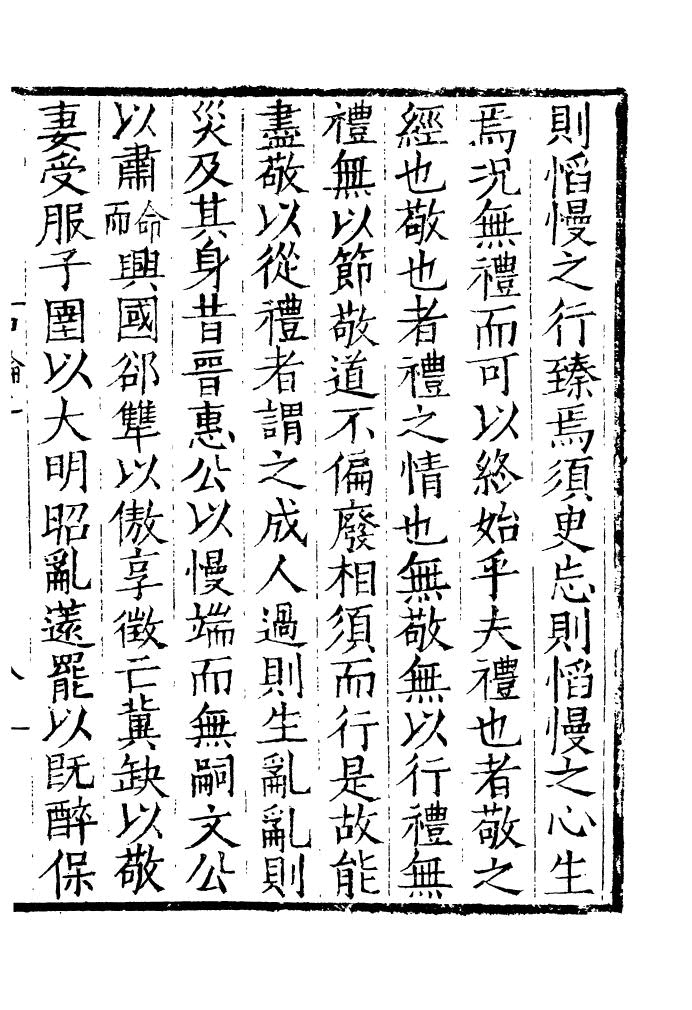 則慆慢之行臻焉須臾忘則慆慢之心生
焉况無禮而可以終始乎夫禮也者敬之
經也敬也者禮之情也無敬無以行禮無
禮無以節敬道不偏廢相須而行是故能
盡敬以從禮者謂之成人過則生亂亂則
災及其身昔晉惠公以慢端而無嗣文公
以肅命而興國郤犨以傲享徵亡冀缺以敬
妻受服子圉以大明昭亂薳罷以既醉保